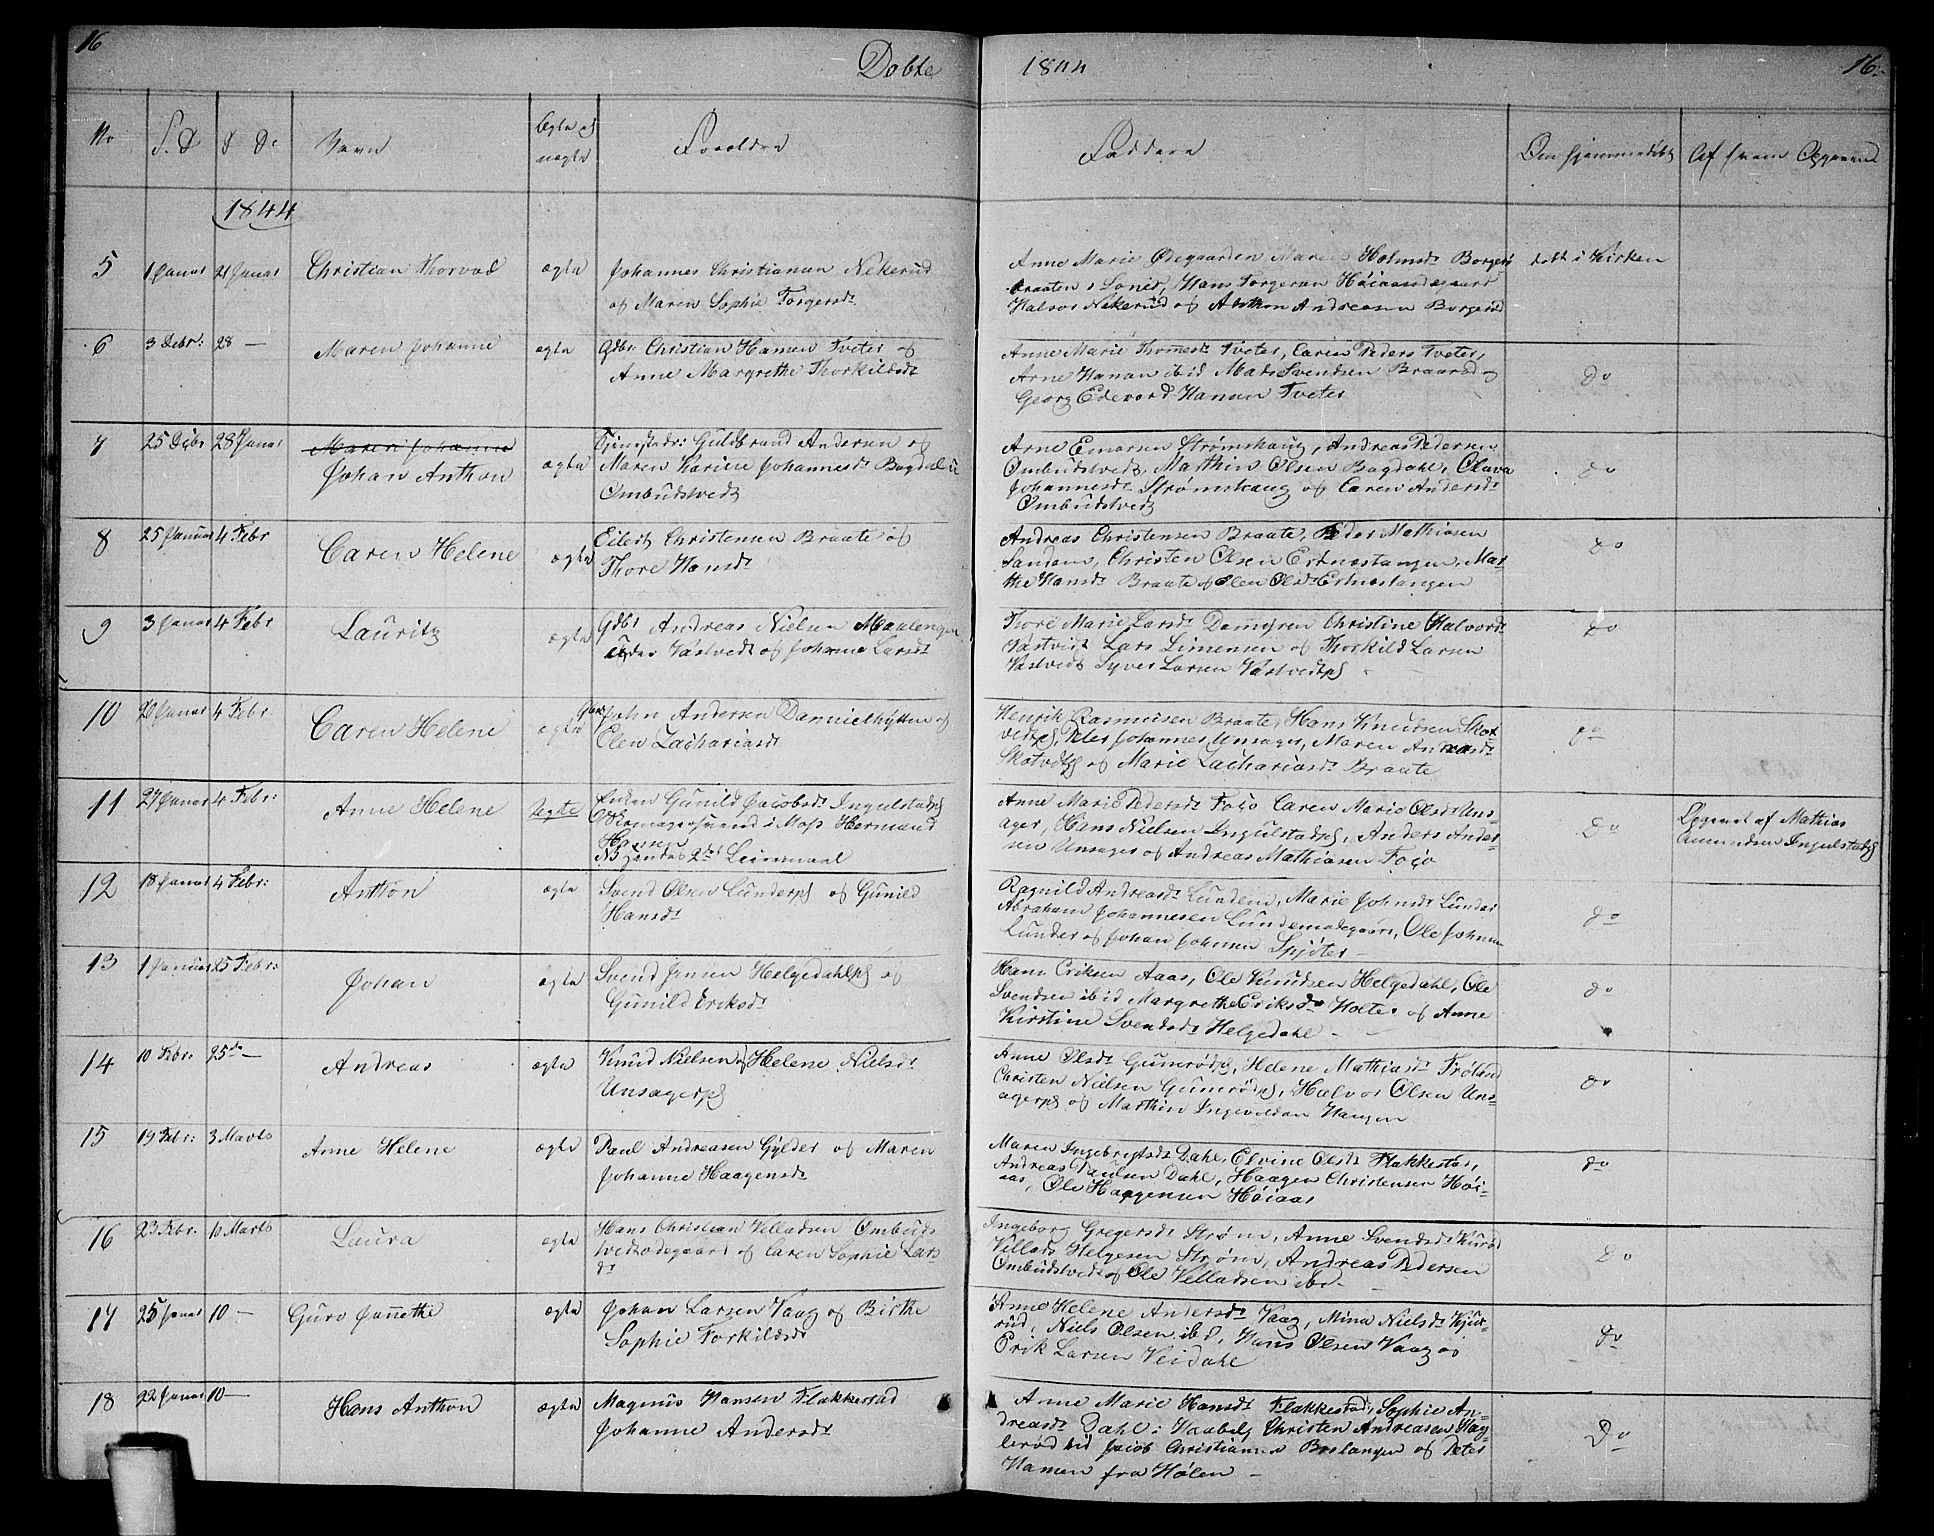 16 Døbte 1844 16
No F. D D. D. Navn Ægte el uægte Forældre Faddere Om hjemmedøbt Af hvem Opgivend
1844
5 1 Januar 21 Januar Christian Thorval ægte Johannes Christiansen Nekerud
of Maren Sophie Torgersdt
Anne Marie Ødegaarden Holmsdt Borger
braaten Hans Torgersen Høiaasødegaard
Halvor Nekerud of Anthon Andreasen Borgerud
døbt i Kirken
6 3 Debr: 28 — Maren Johanne ægte Gdbr Christian Hansen Tveter of
Anne Margrethe Thorkildsdt
Anne Marie Thomesdt Tveter, Caren Peders Tveter,
Arne Hansen ibid Mads Svendsen Braarød og
Georg Edevard Hansen Tveter
do
7 25 Debr 28 Januar Maren Johanne
Johan Anthon
ægte
Tjenestedr: Guldbrand Andersen of
Maren Karine Johannesdt Bogdal
Ombudstvedt
Arne Emarsen Strømshaug, Andreas Pedersen
Ombudstvedt, Mathin Olsen Bogdahl, Olava
Johannesdt Strømshaug of Caren Andersdt
Ombudstvedt
do
8 25 Januar 4 Febr Caren Helene ægte
Eilert Christensen Braate of
Thore Hansdt
Andreas Christensen Braate, Peder Mathiasen
Sandem, Christen Olsen Ertnestangen, Mar-
the Hansdt Braate of Olen Olsdt Ertnestangen
do
9 3 Januar 4 Febr Lauritz ægte
Gdbr Andreas Nielsen Maalengen
under Vastvedt of Johanne Larsdt
Thore Marie Larsdt Damgren Christine Halvordt
Vastvedt Lars Simensen of Thorkild Larsen
Vastvedt Syver Larsen Vastvedt
do
10 26 Januar 4 Febr Caren Helene ægte
John Andersen Danielhytten of
Olen Zachariasdt
Henrik Rasmusen Braate, Hans Knudsen Skot-
vedt, Peter Johannes Unsager, Maren Andreasdt
Skotvedt of Marie Zachariasdt Braate
do
11 27 Januar 4 Febr: Anne Helene Uegte
Enken Gunild Jacobsdt Ingulstad
i Moss Hermand
Hansen
NB hendes 2det Leiermaal
Anne Marie Pedersdt Foso Caren Marie Olsdt Uns-
ager, Hans Nielsen Ingulstad, Anders Ander-
sen Unsager of Andreas Mathiasen Foso
do
Opgivet af Mathias
Amundsen Ingulstad
12 18 Januar 4 Febr: Anthon ægte
Svend Olsen Lunder of Gunild
Hansdt
Ragnild Andreasdt Lundem, Marie Johnsdt Lunder
Abraham Johannesen Lundemødegaard, Ole Johnsen
Lunder of Johan Johnsen Spjøter —
do
13 1 Januar 25 Febr: Johan ægte
Svend Jensen Helgedahl of
Gunild Eriksdt
Hans Eriksen Aaas, Ole Knudsen Helgedahl, Ole
Svendsen ibid Margrethe Eriksdt Holter of Anne
Kirstine Svendsdt Helgedahl —
do
14 10 Febr: 25de — Andreas ægte
Knud Nielsen of Helene Nielsdt
Unsager
Anne Olsdt Gunerød, Helene Mathiasdt Frøland
Christen Nielsen Gunerød, Halvor Olsen Uns-
ager of Marthin Ingevoldsen Haugen
do
15 19 Febr: 3 Marts Anne Helene ægte
Paul Andreasen Gylder of Maren
Johanne Haagensdt
Maren Ingebregtsdt Dahl, Elvine Olsdt Flakkestad,
Andreas Paulsen Dahl, Haagen Christensen Høi-
aas, Ole Haagensen Høiaas
do
16 23 Febr: 10 Marts Laura ægte
Hans Christian Velladsen Ombuds
tvedtødegaard of Caren Sophie Lars
dt
Ingeborg Gregersdt Strøm, Anne Svendsdt Kurød
Villads Helgesen Strøm, Andreas Pedersen
Ombudstvedt of Ole Velladsen ibd —
do
17 25 Januar 10 — Guro Jannethe ægte
Johan Larsen Vaag of Birthe
Sophie Torkildsdt
Anne Helene Andersdt Vaag, Mina Nielsdt Kjus-
rud, Niels Olsen ibd, Hans Olsen Vaag of
Erik Larsen Veidahl
do
18 22 Januar 10 — Hans Anthon ægte
Magnus Hansen Flakkestad
Johanne Andersdt
Anne Marie Hansdt Flakkestad, Sophie An-
dreasdt Dahl i Vaabelg Christen Andreasen Hag-
lerød ibid Jacob Christiansen Boslangen of Peter
Hansen fra Hølen —
Do